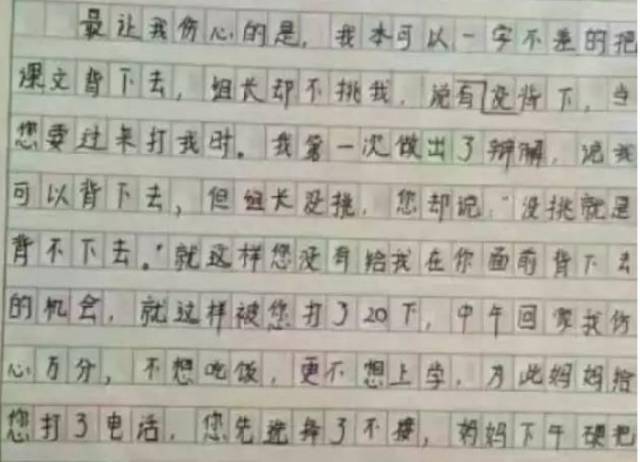 最让我伤心的是，我本可以一字不差的把
课文背下去，组长却不挑我，说有没背下，当
您要过来打我时。我第一次做出了辩解，说我
可以背下去，但组长没挑，您却说，“没挑就是
背不下去。”就这样您没有给我在你面前背下去
的机会，就这样被您打了20下，中午回家我伤
心万分，不想吃饭，更不想上学，为此妈妈给
您打了电话，您先选择了不接，妈妈下午硬把